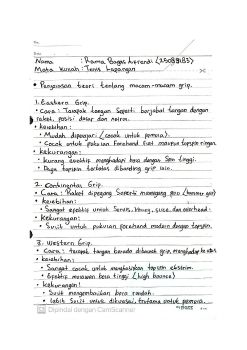 No.
Date.
Nama : Rama Bagas Aprendi (25088183)
Mata Kuliah : Tenis Lapangan
• Penjelasan teori tentang macam-macam grip.
1. Eastern Grip.
• Cara : Telapak tangan seperti berjabat tangan dengan
raket, posisi datar dan netral.
• kelebihan :
• Mudah dipelajari (cocok untuk pemula).
• Cocok untuk pukulan forehand flat maupun topspin ringan.
• kekurangan :
• kurang efektif menghadapi bola dengan spin tinggi.
• Daya topspin terbatas dibanding grip lain.
2. Continental Grip.
• Cara : Raket dipegang seperti memegang palu (hammer grip)
• kelebihan :
• Sangat efektif untuk servis, volley, slice, dan overhead.
• Kekurangan :
• Sulit untuk pukulan forehand modern dengan topspin.
3. Western Grip.
• Cara : telapak tangan berada dibawah grip, menghadap ke atas
• kelebihan :
• Sangat cocok untuk menghasilkan topspin ekstrim.
• Efektif melawan bola tinggi (high bounce)
• kekurangan :
• Sulit mengembalikan bola rendah.
• lebih sulit untuk dikuasai, terutama untuk pemula.
Dipindai dengan CamScanner